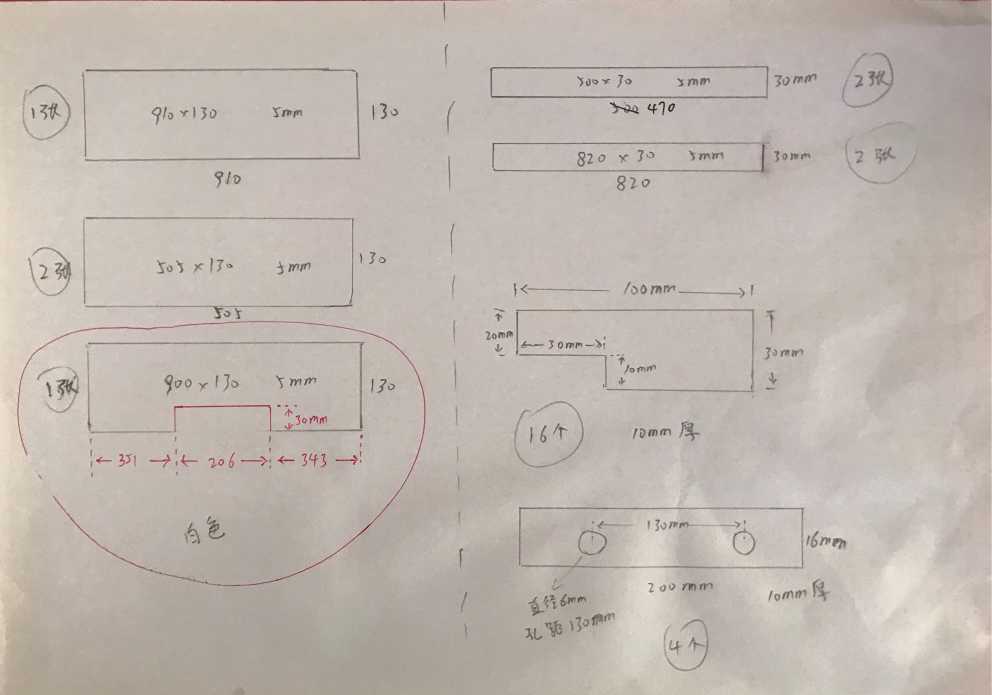 1张
910×130 5mm
130
910
2张
505×130 5mm
130
505
1张
900×130 5mm
130
30mm
351 206 343
白色
500×30 5mm
30mm
2张
500 470
820×30 5mm
30mm
2张
820
100mm
20mm
30mm
10mm
30mm
16个
10mm厚
130mm
16mm
200mm
10mm厚
直径6mm
孔距130mm
4个